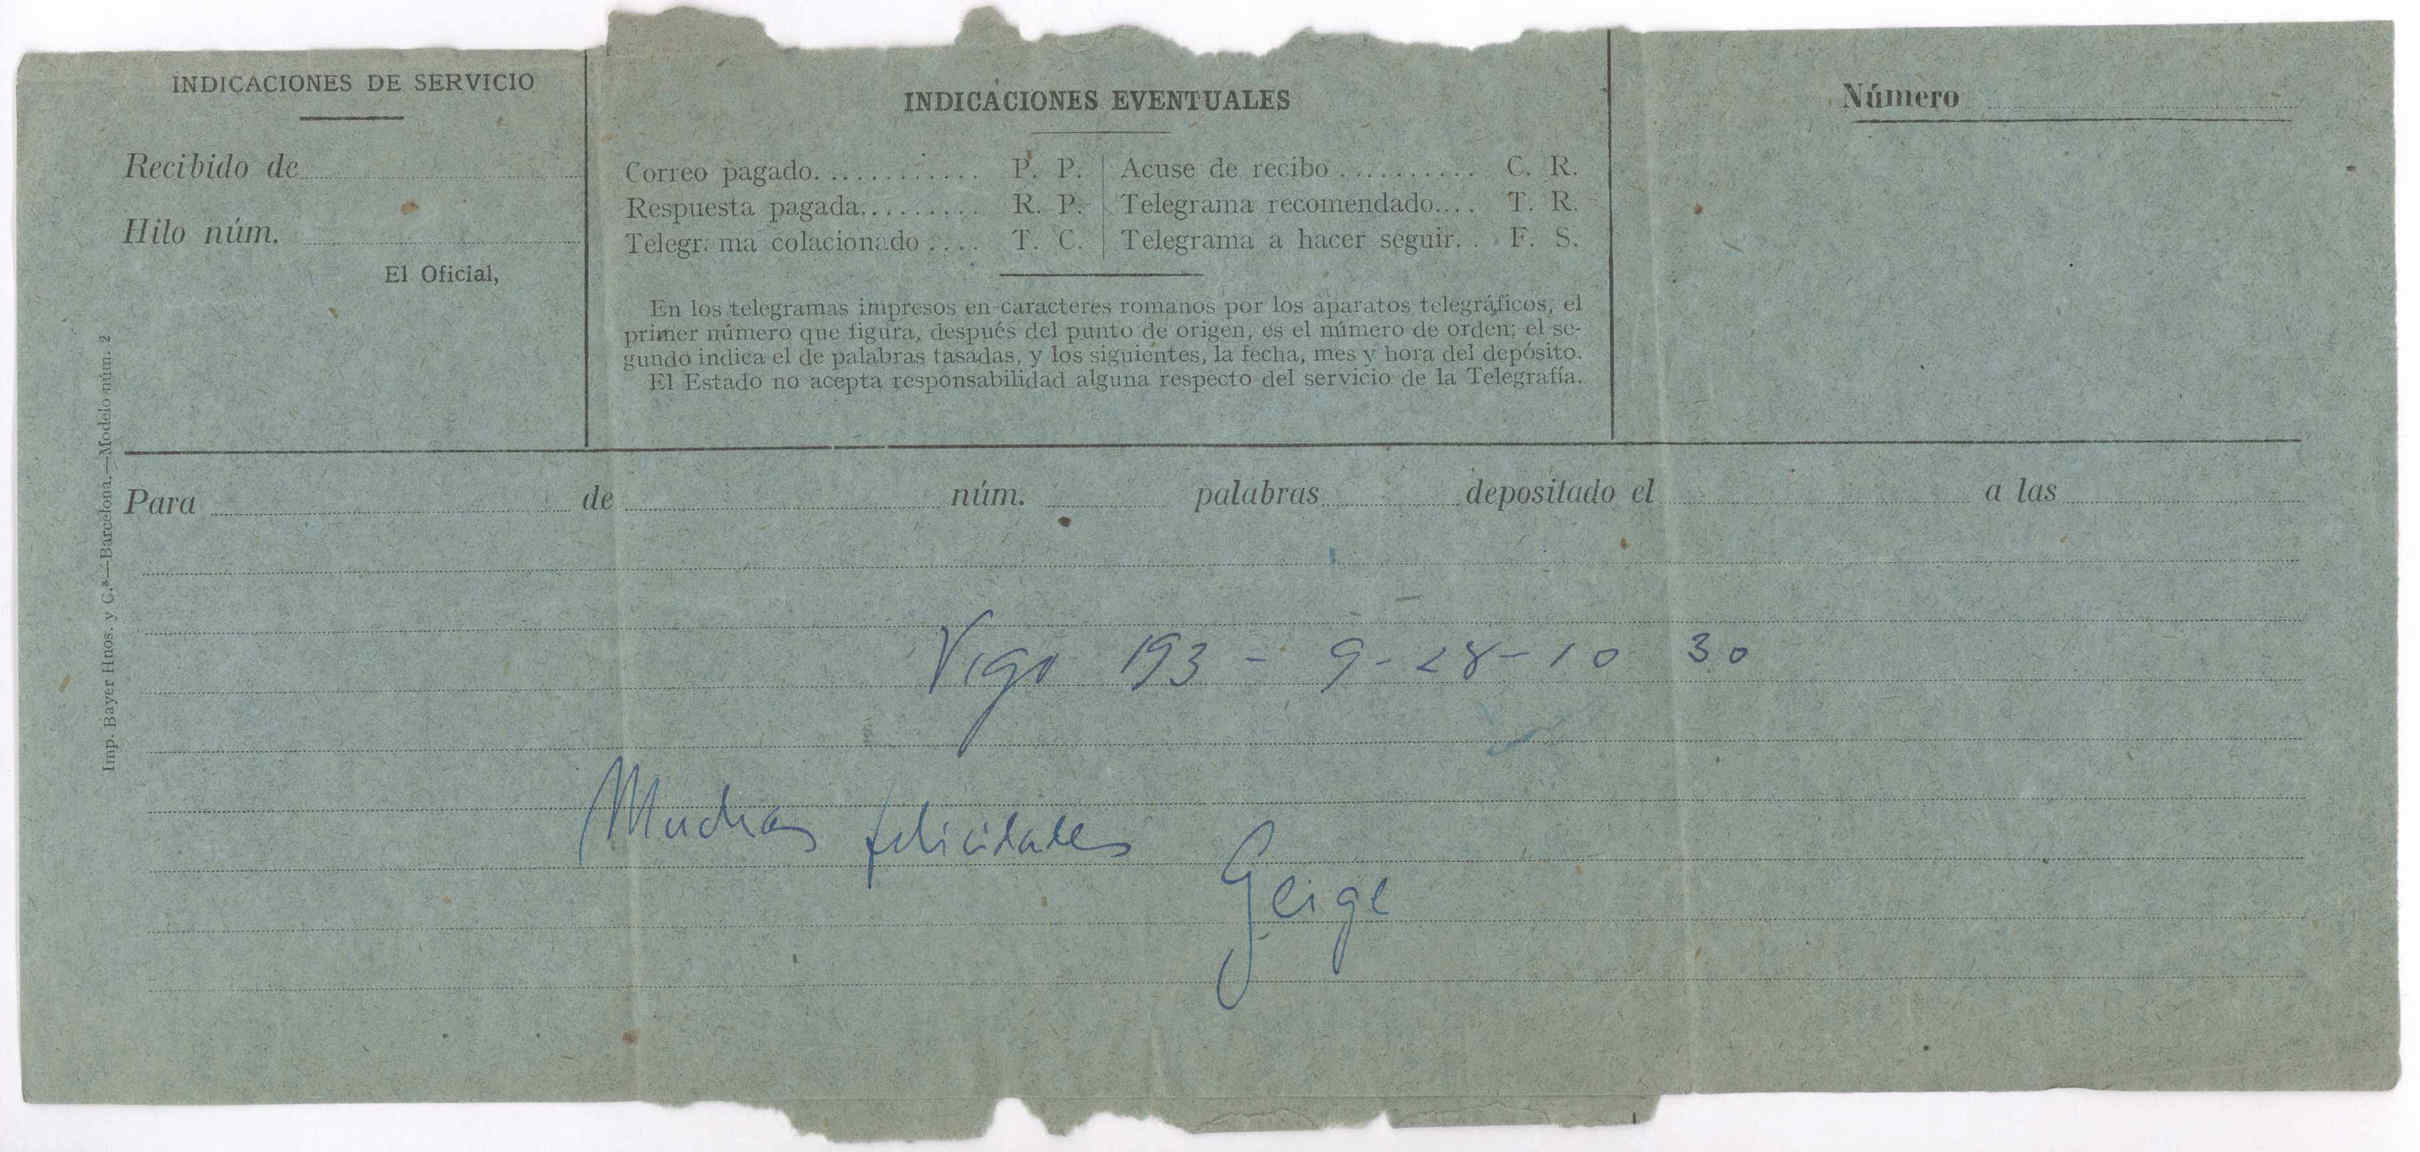 INDICACIONES DE SERVICIO
Recibido de
Hilo núm.
El Oficial,
INDICACIONES EVENTUALES
Correo pagado............ P. P.
Respuesta pagada......... R. P.
Telegrama colacionado.... T. C.
Acuse de recibo.......... C. R.
Telegrama recomendado.... T. R.
Telegrama a hacer seguir.. F. S.
En los telegramas impresos en caracteres romanos por los aparatos telegráficos, el
primer número que figura, después del punto de origen, es el número de orden; el se-
gundo indica el de palabras tasadas, y los siguientes, la fecha, mes y hora del depósito.
El Estado no acepta responsabilidad alguna respecto del servicio de la Telegrafía.
Número
Imp. Bayer Hnos. y C.ª—Barcelona.—Modelo núm. 2
Para de núm. palabras depositado el a las
Vigo 193 - 9 - 28 - 10 30
Muchas felicidades
Geige